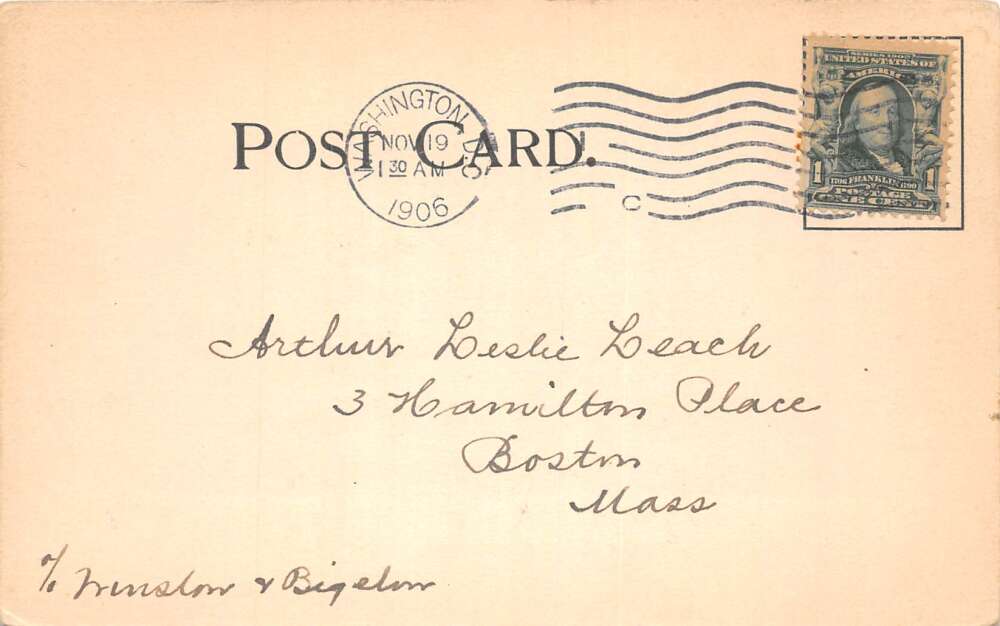 POST CARD.
WASHINGTON, D.C.
NOV 19
1 30 AM
1906
C
SERIES 1902
UNITED STATES OF
AMERICA
1706 FRANKLIN 1790
1 POSTAGE 1
ONE CENT
Arthur Leslie Leach
3 Hamilton Place
Boston
Mass
c/o Winslow & Bigelow